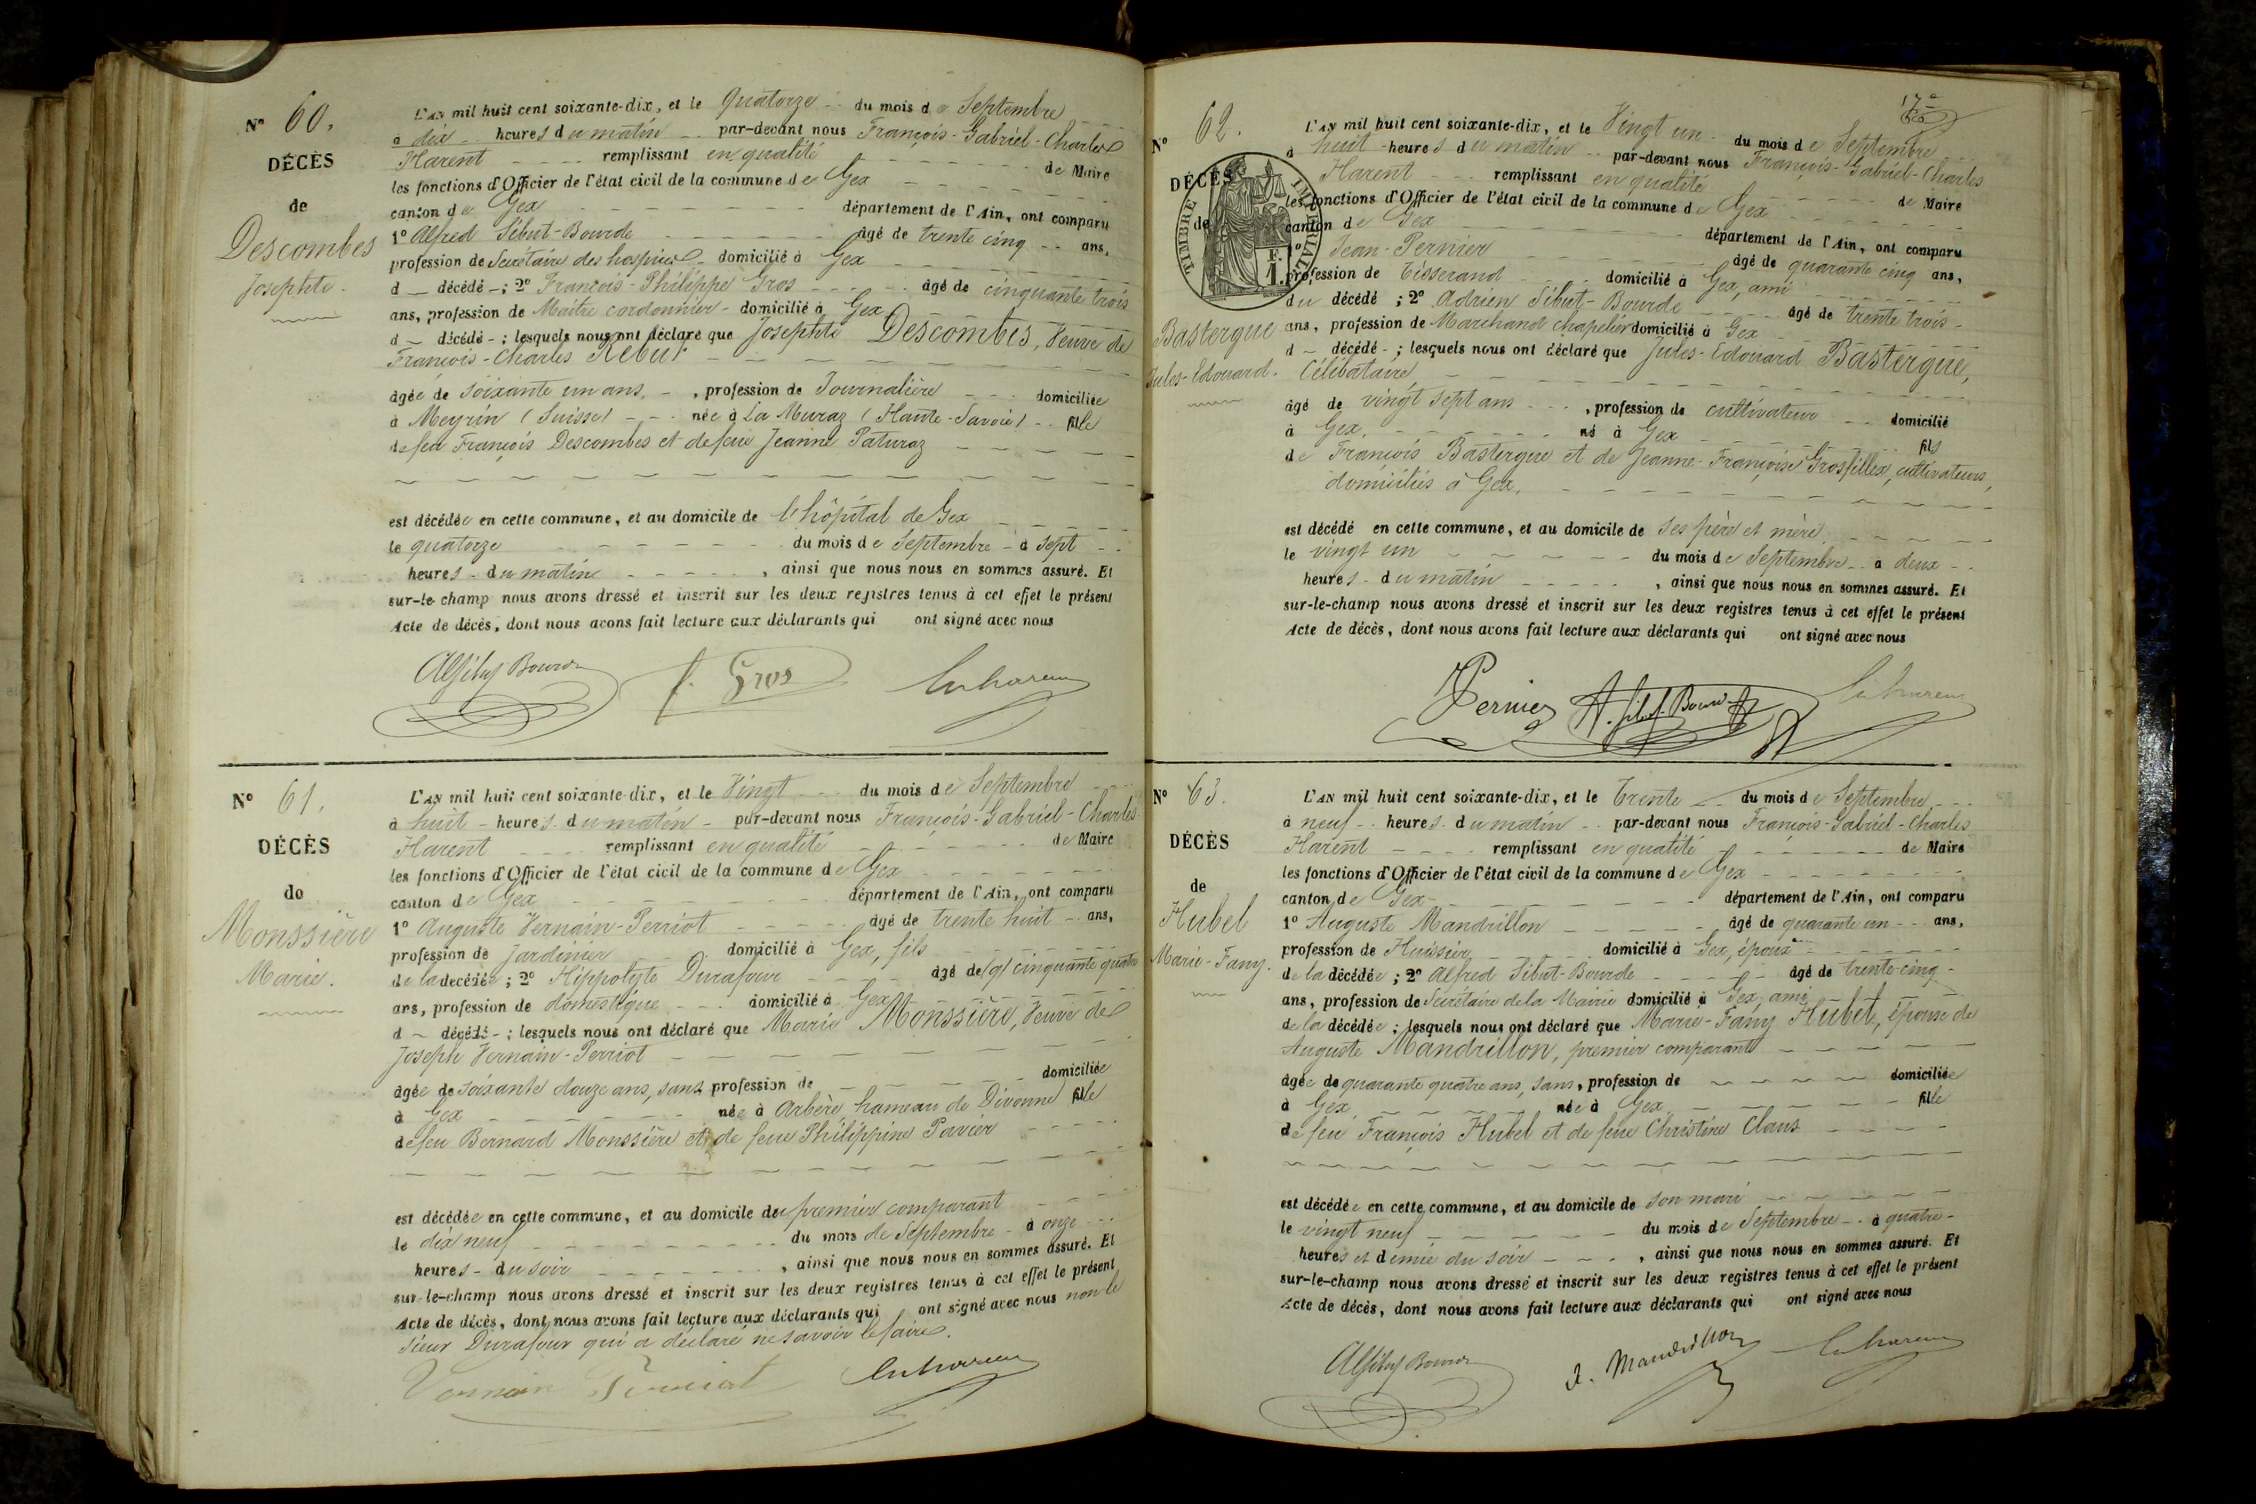 Nº 60.
DÉCÈS
de
Descombes
Josephte.
L'AN mil huit cent soixante-dix, et le Quatorze du mois de Septembre
à dix heures du matin par-devant nous François-Gabriel-Charles
Harent remplissant en qualité de Maire
les fonctions d'Officier de l'état civil de la commune de Gex
canton de Gex département de l'Ain, ont comparu
1º Alfred Sibut-Bourde âgé de trente cinq ans,
profession de Secrétaire des hospices domicilié à Gex
d décédé ; 2º François-Philippe Gros âgé de cinquante trois
ans, profession de Maître cordonnier domicilié à Gex
d décédé ; lesquels nous ont déclaré que Josephte Descombes, Veuve de
François-Charles Rebut
âgée de soixante un ans, profession de Journalière domiciliée
à Meyrin (Suisse) née à La Muraz (Haute-Savoie) fille
de feu François Descombes et de feue Jeanne Paturaz
est décédée en cette commune, et au domicile de l'hôpital de Gex
le quatorze du mois de Septembre à sept
heures du matin, ainsi que nous nous en sommes assuré. Et
sur-le-champ nous avons dressé et inscrit sur les deux registres tenus à cet effet le présent
Acte de décès, dont nous avons fait lecture aux déclarants qui ont signé avec nous
f. Gros
Nº 61.
DÉCÈS
de
Monssière
Marie.
L'AN mil huit cent soixante-dix, et le Vingt du mois de Septembre
à huit heures du matin par-devant nous François-Gabriel-Charles
Harent remplissant en qualité de Maire
les fonctions d'Officier de l'état civil de la commune de Gex
canton de Gex département de l'Ain, ont comparu
1º Auguste Vernain-Perriot âgé de trente huit ans,
profession de jardinier domicilié à Gex, fils
de la décédée ; 2º Hippolyte Durafour âgé de (g) cinquante quatre
ans, profession de domestique domicilié à Gex
d décédé ; lesquels nous ont déclaré que Marie Monssière, Veuve de
Joseph Vernain-Perriot
âgée de soixante douze ans, sans profession de domiciliée
à Gex née à Arbère, hameau de Divonne fille
de feu Bernard Monssière et de feue Philippine Pavier
est décédée en cette commune, et au domicile du premier comparant
le dix neuf du mois de Septembre à onze
heures du soir, ainsi que nous nous en sommes assuré. Et
sur-le-champ nous avons dressé et inscrit sur les deux registres tenus à cet effet le présent
Acte de décès, dont nous avons fait lecture aux déclarants qui ont signé avec nous non le
sieur Durafour qui a déclaré ne savoir le faire.
Vernain Perriot
Nº 62.
DÉCÈS
de
TIMBRE IMPÉRIAL
1 F.
Bastergue
Jules-Edouard.
L'AN mil huit cent soixante-dix, et le Vingt un du mois de Septembre
à huit heures du matin par-devant nous François-Gabriel-Charles
Harent remplissant en qualité de Maire
les fonctions d'Officier de l'état civil de la commune de Gex
canton de Gex département de l'Ain, ont comparu
1º Jean-Pernier âgé de quarante cinq ans,
profession de Tisserand domicilié à Gex, ami
du décédé ; 2º Adrien Sibut-Bourde âgé de trente trois
ans, profession de Marchand chapelier domicilié à Gex
d décédé ; lesquels nous ont déclaré que Jules-Edouard Bastergue,
Célibataire,
âgé de vingt sept ans, profession de cultivateur domicilié
à Gex, né à Gex fils
de François Bastergue et de Jeanne-Françoise Grosfillex, cultivateurs,
domiciliés à Gex.
est décédé en cette commune, et au domicile de ses père et mère
le vingt un du mois de Septembre à deux
heures du matin, ainsi que nous nous en sommes assuré. Et
sur-le-champ nous avons dressé et inscrit sur les deux registres tenus à cet effet le présent
Acte de décès, dont nous avons fait lecture aux déclarants qui ont signé avec nous
Pernier
Nº 63.
DÉCÈS
de
Hubel
Marie-Fany.
L'AN mil huit cent soixante-dix, et le Trente du mois de Septembre
à neuf heures du matin par-devant nous François-Gabriel-Charles
Harent remplissant en qualité de Maire
les fonctions d'Officier de l'état civil de la commune de Gex
canton de Gex département de l'Ain, ont comparu
1º Auguste Mandrillon âgé de quarante un ans,
profession de Huissier domicilié à Gex, époux
de la décédée ; 2º Alfred Sibut-Bourde âgé de trente-cinq
ans, profession de Secrétaire de la Mairie domicilié à Gex, ami
de la décédée ; lesquels nous ont déclaré que Marie-Fany Hubel, épouse de
Auguste Mandrillon, premier comparant
âgée de quarante quatre ans, sans, profession de domiciliée
à Gex née à Gex fille
de feu François Hubel et de feue Christine Claus
est décédée en cette commune, et au domicile de son mari
le vingt neuf du mois de Septembre à quatre
heures et demie du soir, ainsi que nous nous en sommes assuré. Et
sur-le-champ nous avons dressé et inscrit sur les deux registres tenus à cet effet le présent
Acte de décès, dont nous avons fait lecture aux déclarants qui ont signé avec nous
A. Mandrillon